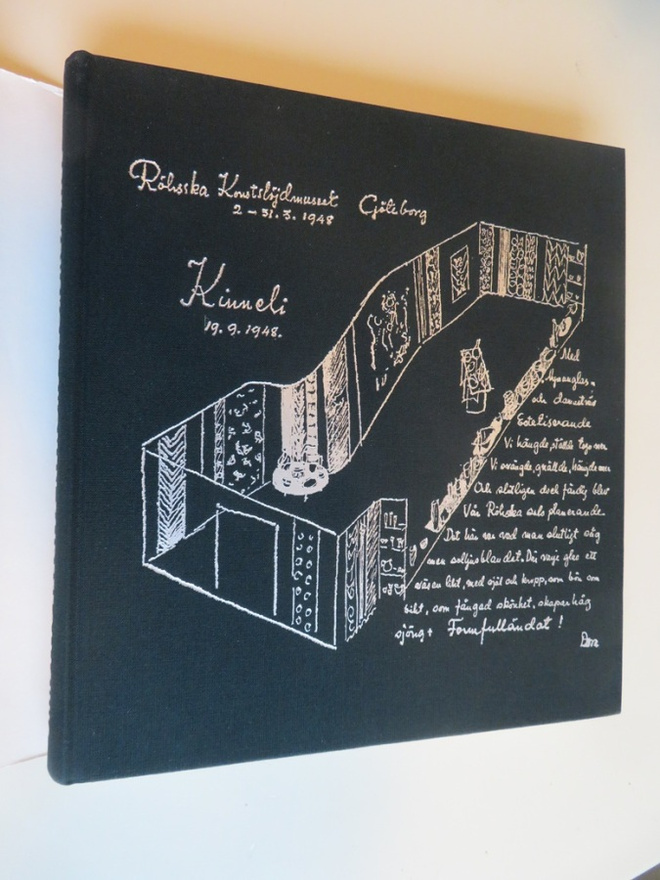 Röhsska Konstslöjdmuseet Göteborg
2-31.3.1948
Kinneli
19.9.1948.
Med
och
Estetiserande
Vi hängde, ställde
Vi svängde, gnällde, hängde
Och slutligen dock färdig blev
Vår Röhska
Det här var vad man slutligt såg
men solljusblandat. Där varje glas ett
väsen likt, med själ och kropp, som bön som
bikt, som fångad skönhet, skaparhåg
sjöng: Formfulländat!